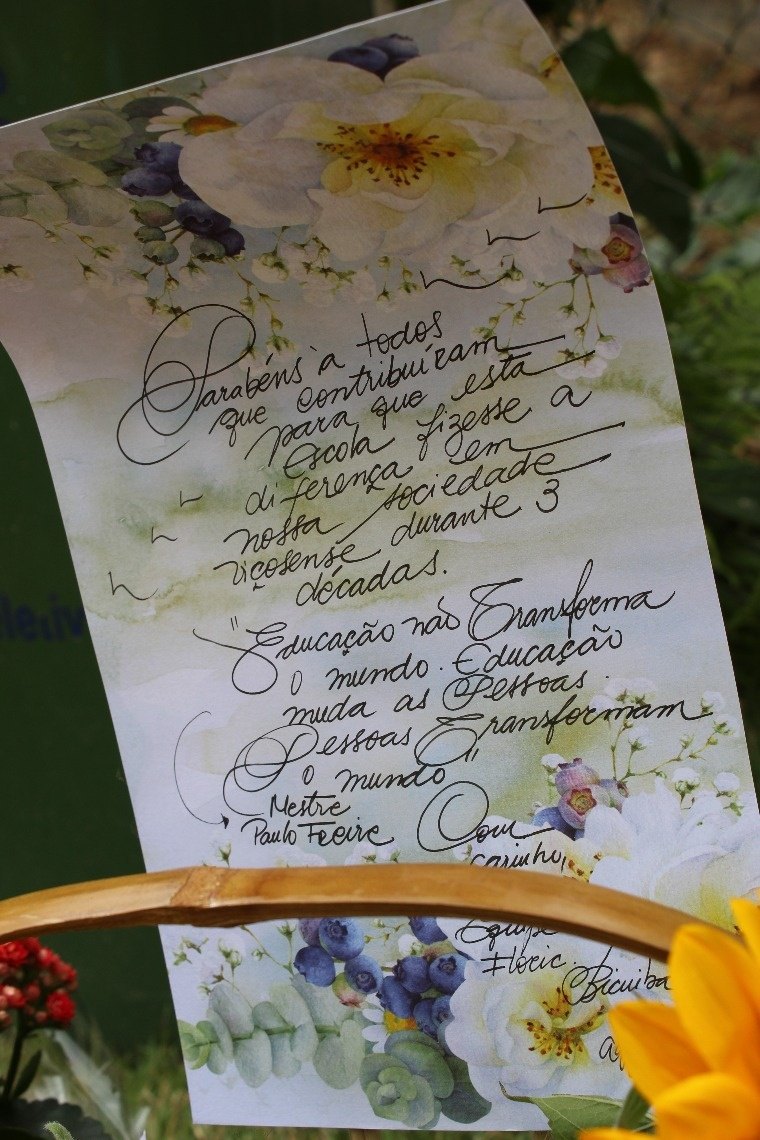 Parabéns à todos
que contribuíram
para que esta
Escola fizesse a
diferença em
nossa sociedade
viçosense durante 3
décadas.
"Educação não Transforma
o mundo. Educação
muda as Pessoas.
Pessoas Transformam
o mundo"
Mestre
Paulo Freire
Com
carinho,
Equipe
Bicuiba